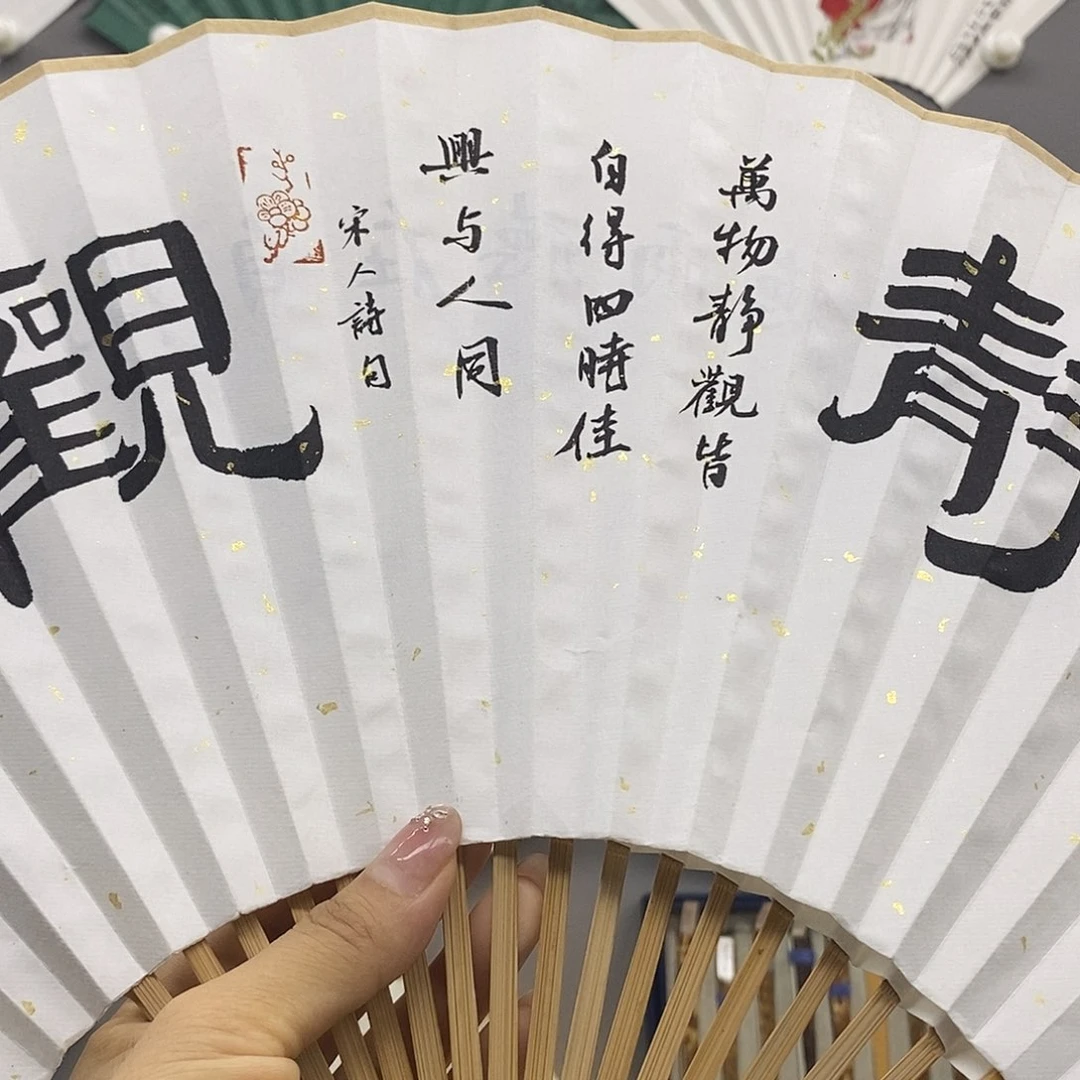 靜
萬物静觀皆
自得四時佳
興与人同
宋人詩句
觀